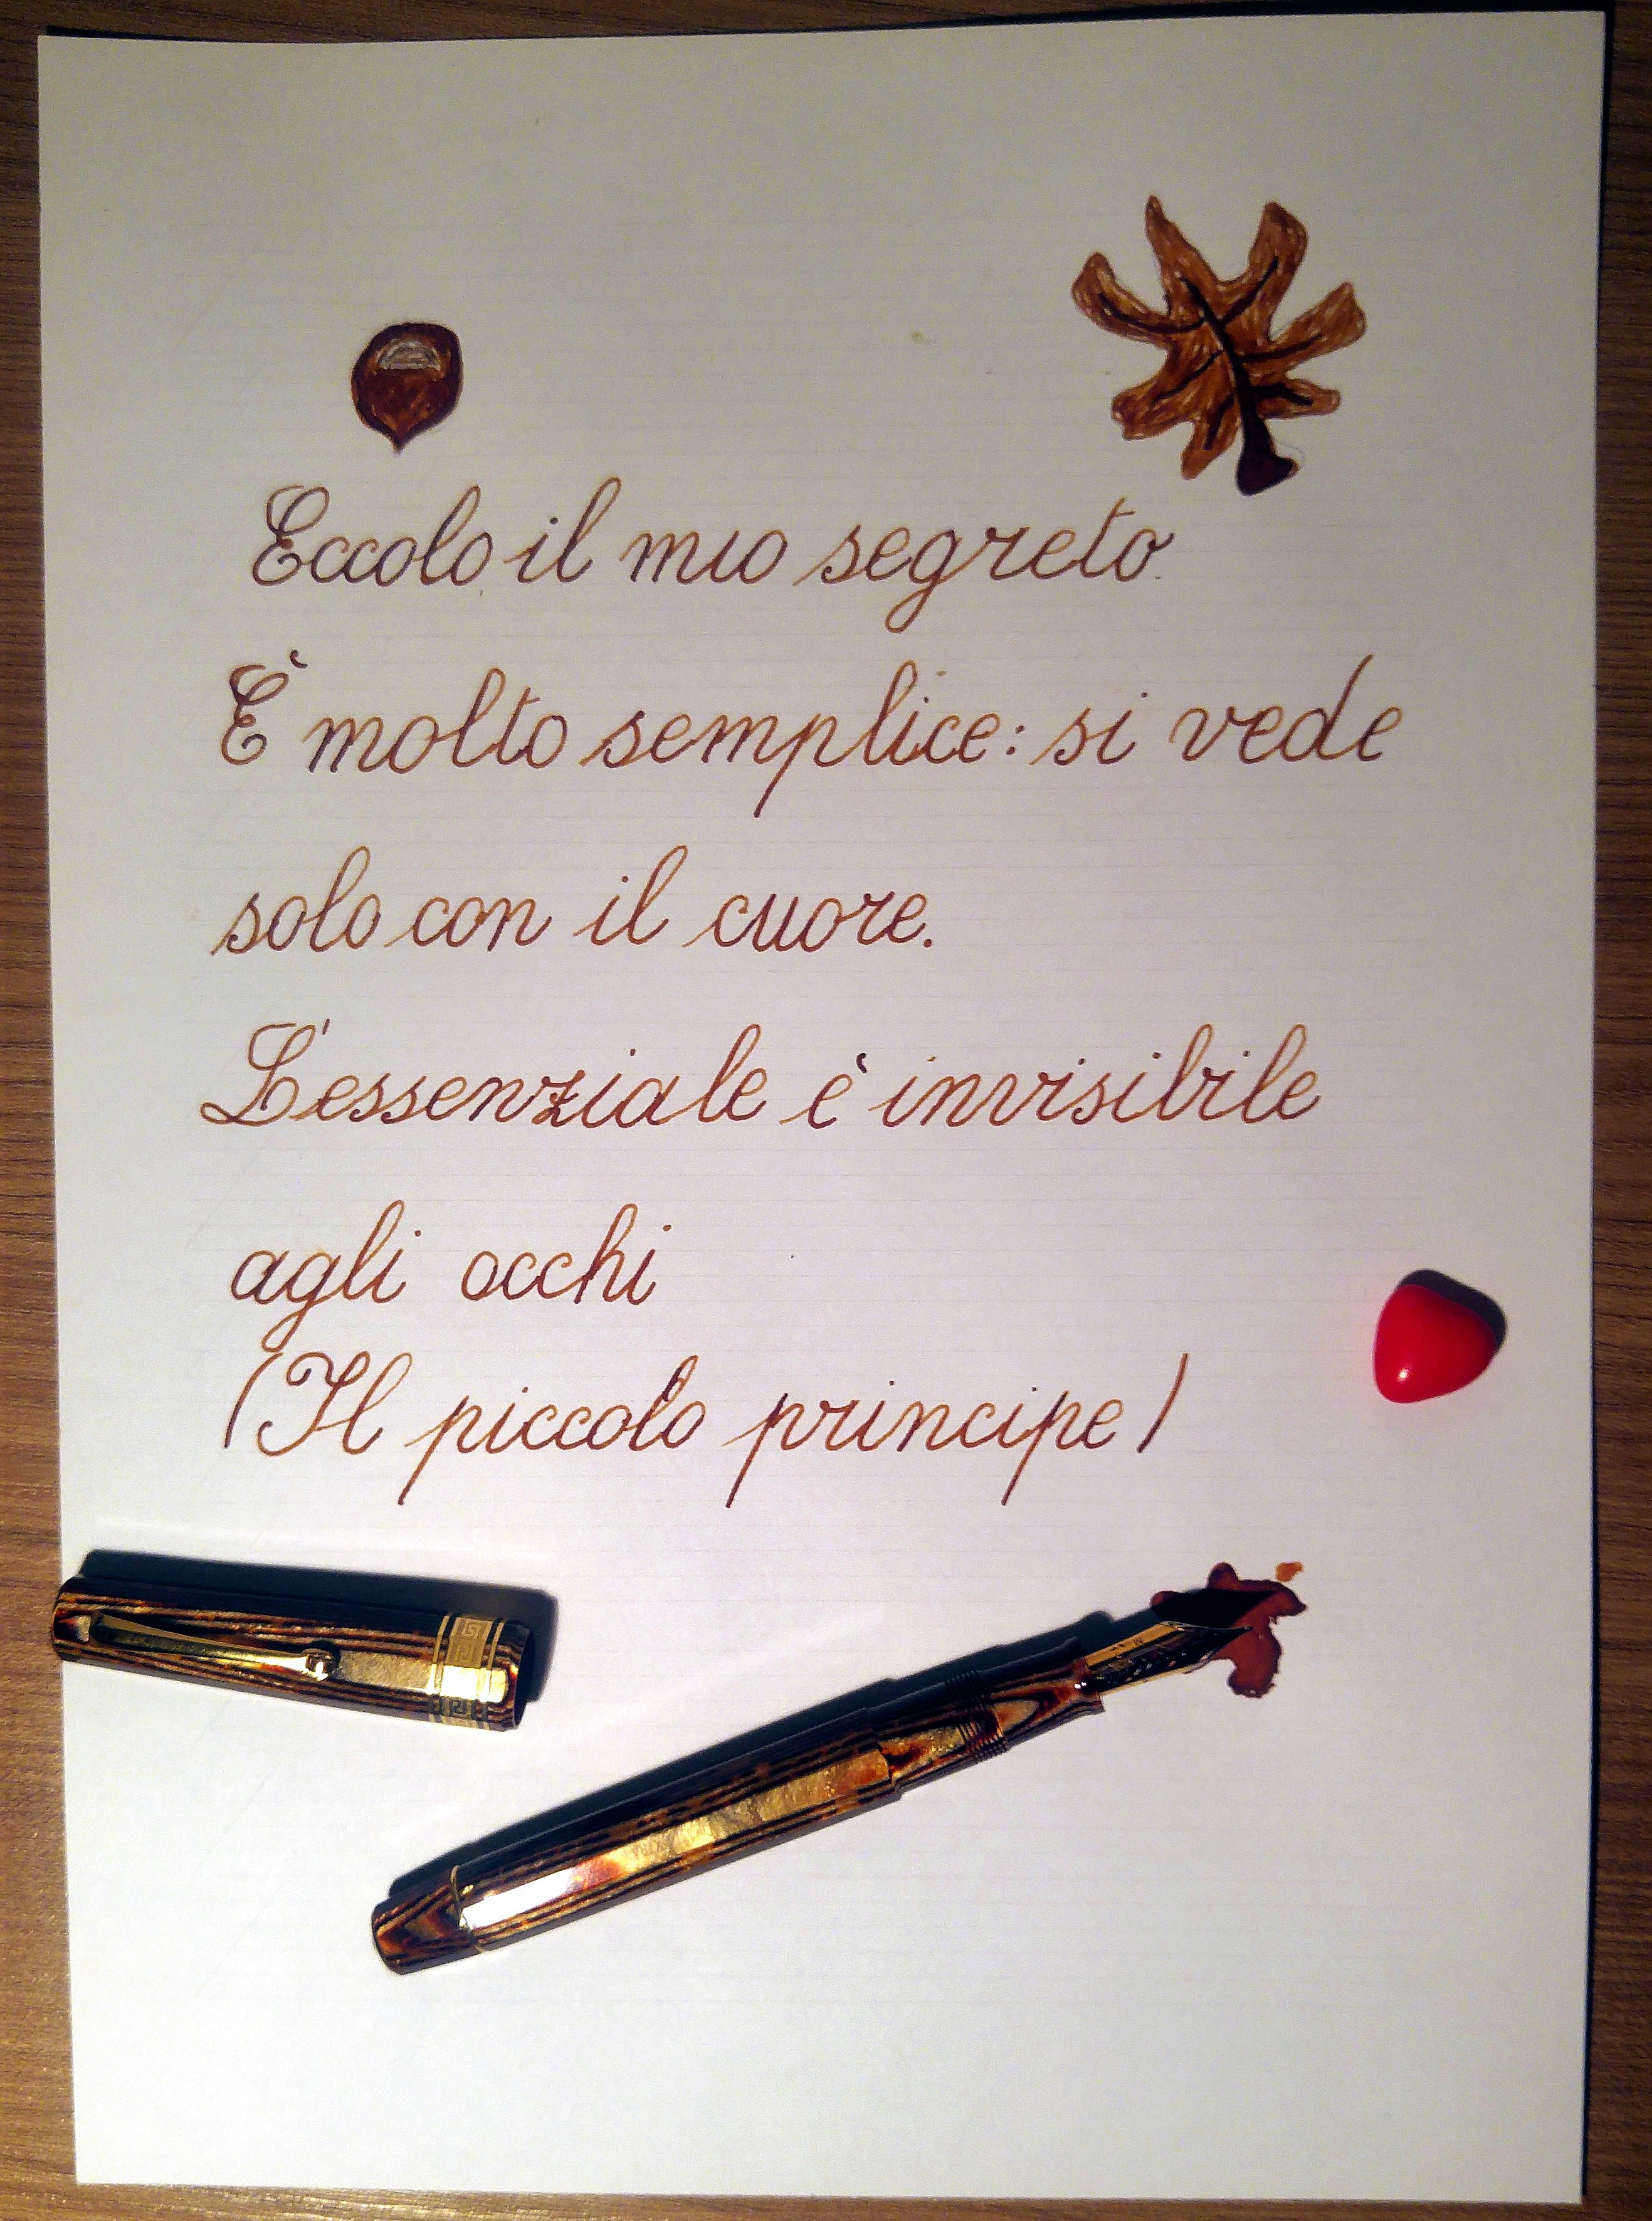 Eccolo il mio segreto.
È molto semplice: si vede
solo con il cuore.
L'essenziale è invisibile
agli occhi
(Il piccolo principe)